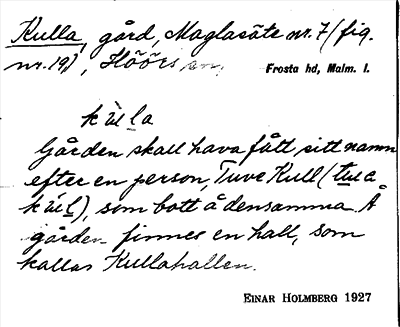 Kulla, gård, Maglasäte nr. 7 (fig.
nr. 19), Höörs sn,
Frosta hd, Malm. l.
kùla
Gården skall hava fått sitt namn
efter en person, Tuve Kull (
), som bott å densamma. Å
gården finnes en hall, som
kallas Kullahallen.
EINAR HOLMBERG 1927